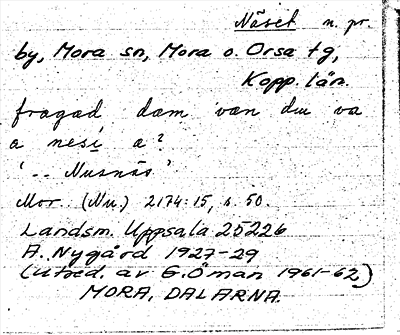 Näset n. pr.
by, Mora sn, Mora o. Orsa tg,
Kopp. län.
fragad dam van du va
a nesi a?
'.. Nusnäs'
Mor. (Nu.) 2174:15, s. 50.
Landsm. Uppsala 25226
A. Nygård 1927-29
(utred. av E. Öman 1961-62)
MORA, DALARNA.